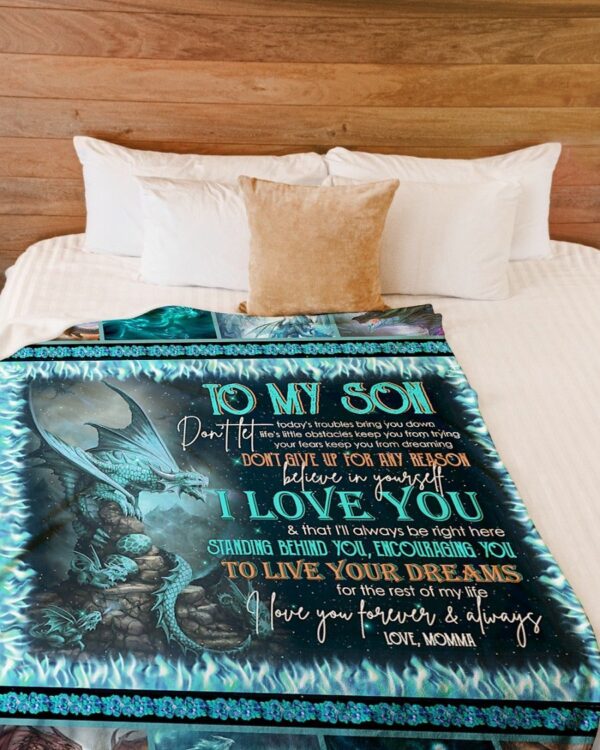 TO MY SON
Don't let today's troubles bring you down
life's little obstacles keep you from trying
your fears keep you from dreaming
DON'T GIVE UP FOR ANY REASON
believe in yourself
I LOVE YOU
& that I'll always be right here
STANDING BEHIND YOU, ENCOURAGING YOU
TO LIVE YOUR DREAMS
for the rest of my life
I love you forever & always
LOVE, MOMMA